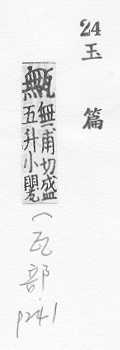 24
玉篇
甒
無甫切盛
五升小甖
(瓦部
p241